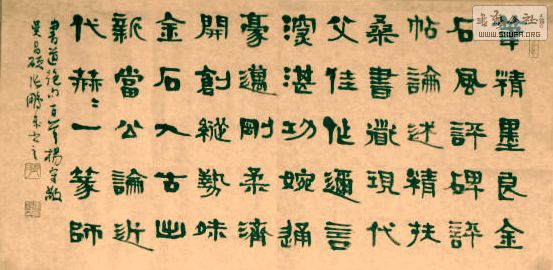 精墨良金
石風評碑評
帖論述精扶
桑書道現代
父佳作邇言
湛功婉通
豪邁剛柔濟
開創縱勢味
金石入古出
新當公論近
代赫〻一篆師
書道絕句百首 楊守敬
吳昌碩 張鵬